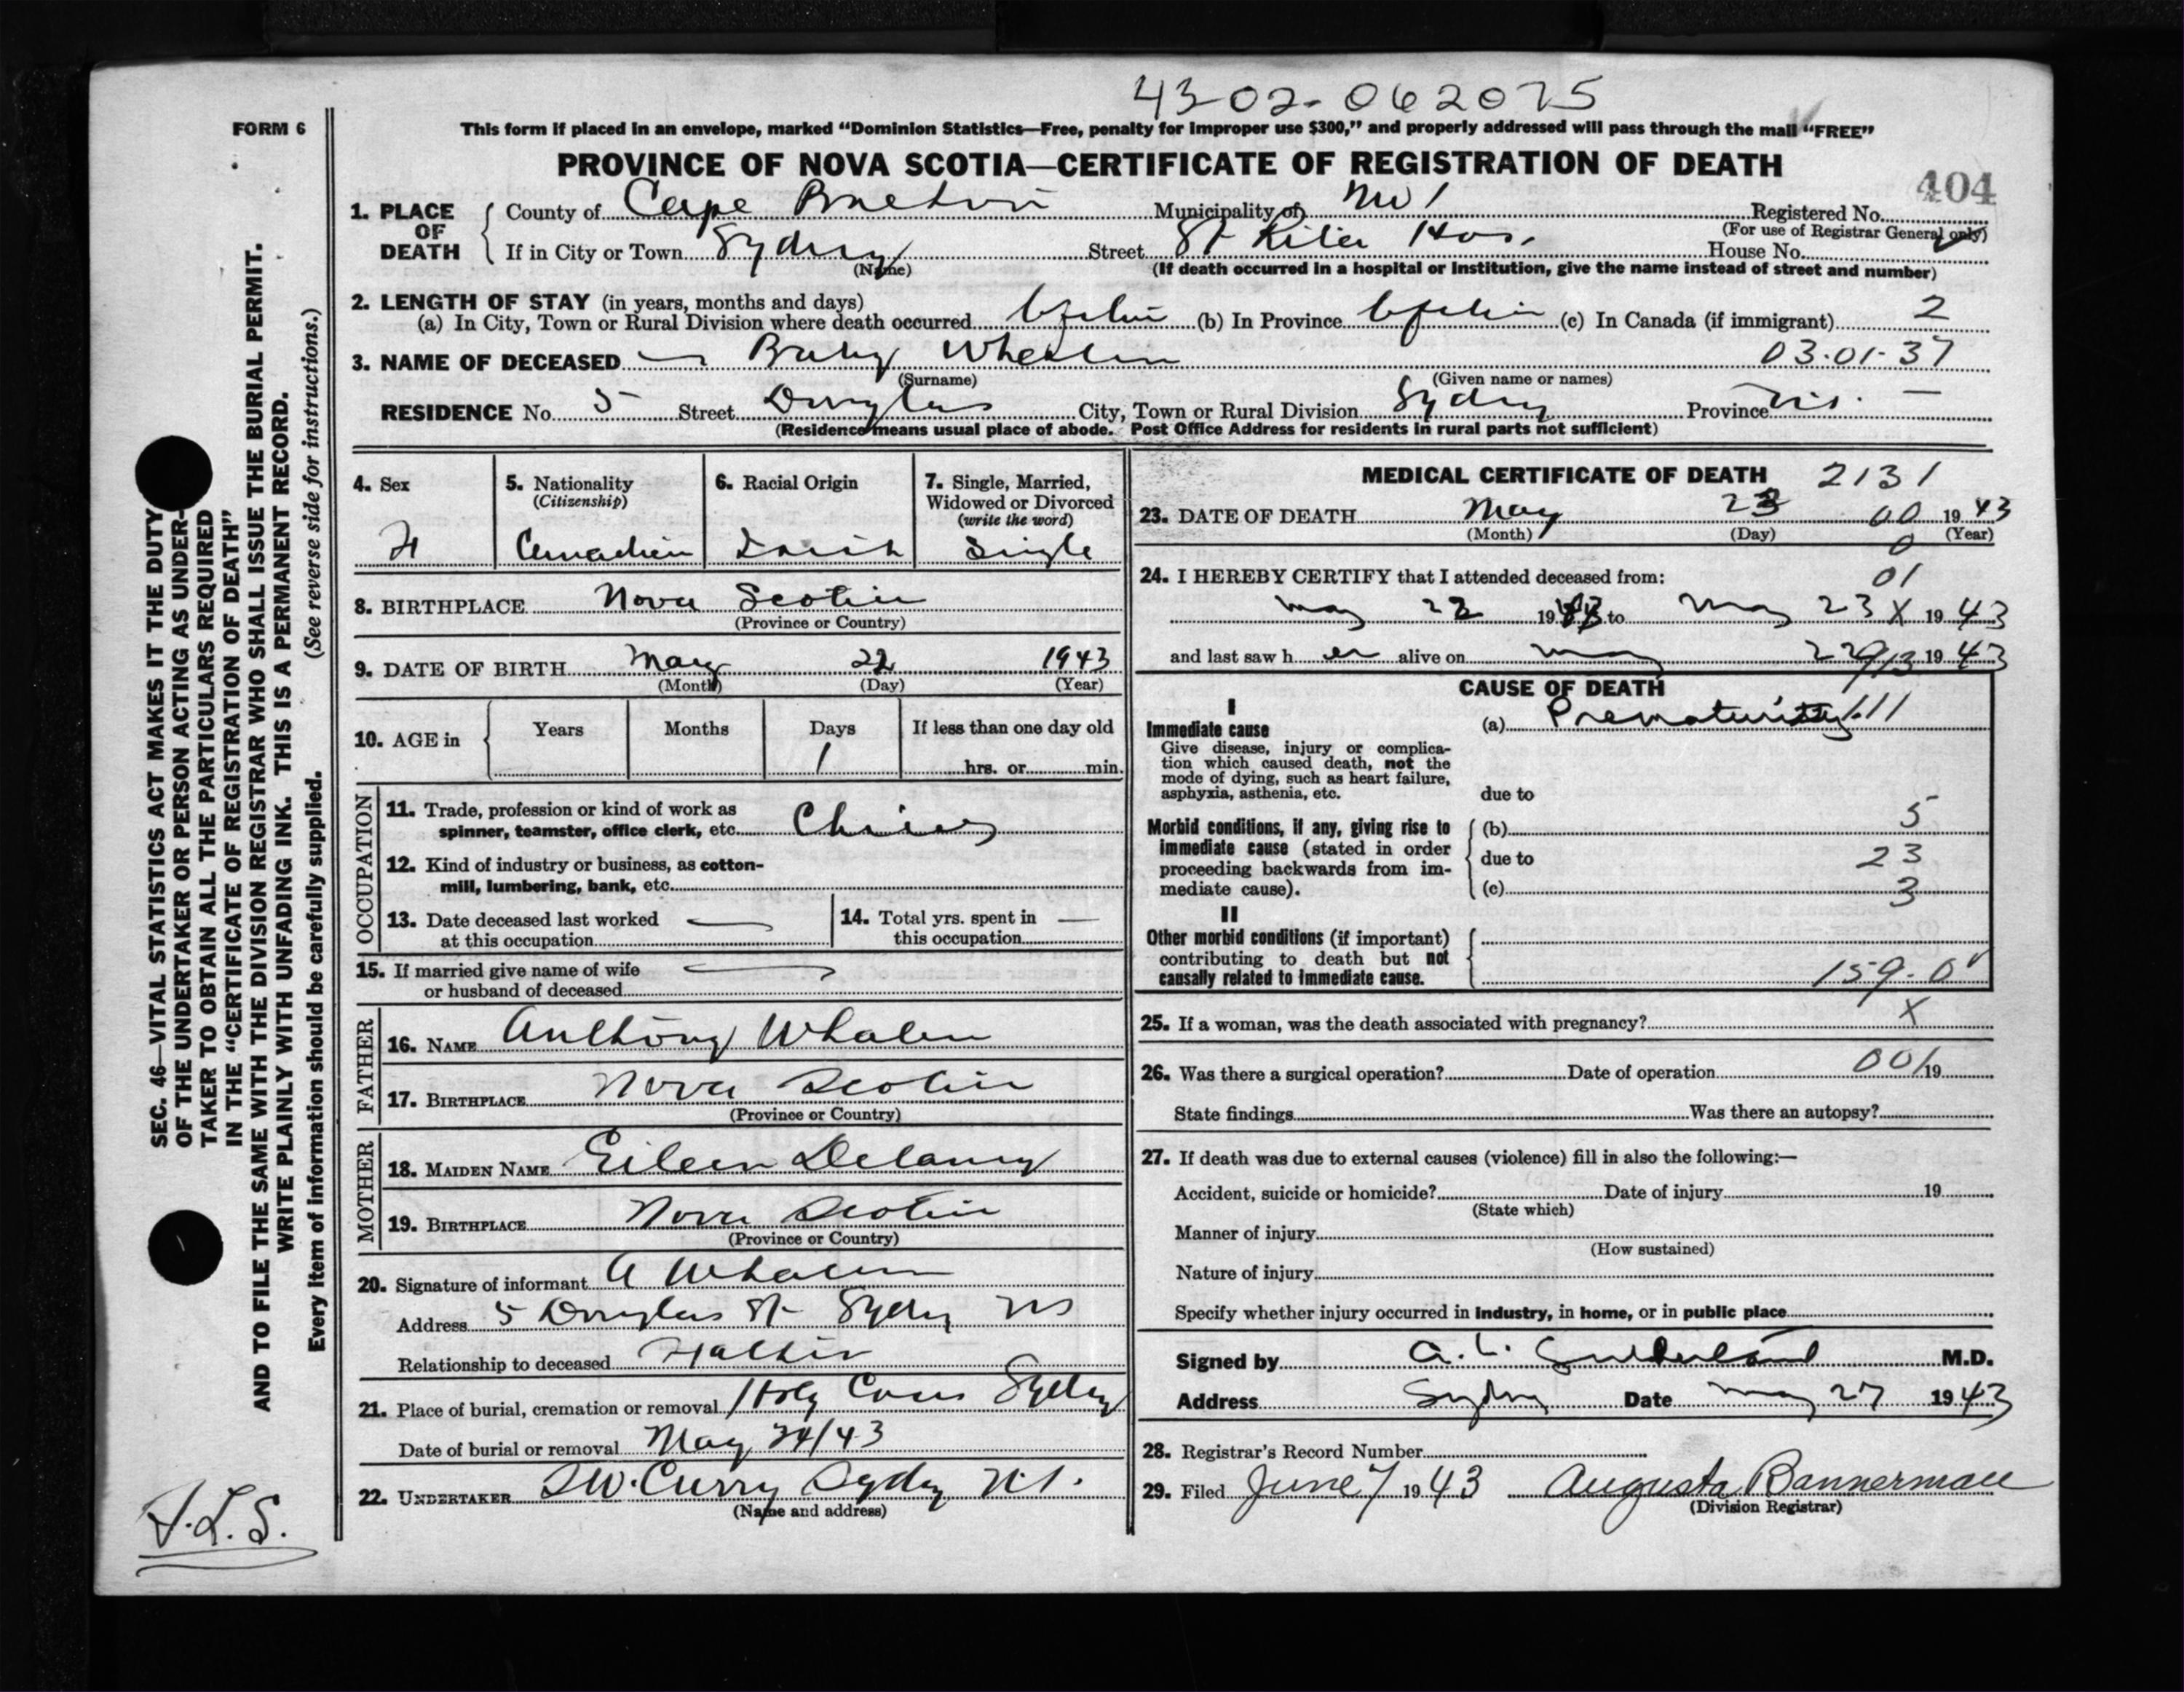 43-02-062075
FORM 6
This form if placed in an envelope, marked "Dominion Statistics—Free, penalty for improper use $300," and properly addressed will pass through the mail "FREE"
PROVINCE OF NOVA SCOTIA—CERTIFICATE OF REGISTRATION OF DEATH
404
1. PLACE OF DEATH { County of Cape Breton Municipality of No 1 Registered No.
(For use of Registrar General only)
If in City or Town Sydney Street St Rita Hos. House No.
(Name) (If death occurred in a hospital or institution, give the name instead of street and number)
2. LENGTH OF STAY (in years, months and days)
(a) In City, Town or Rural Division where death occurred (b) In Province (c) In Canada (if immigrant) 2
3. NAME OF DECEASED Baby Whalen 03-01-37
(Surname) (Given name or names)
RESIDENCE No. 5 Street Douglas City, Town or Rural Division Sydney Province N.S. —
(Residence means usual place of abode. Post Office Address for residents in rural parts not sufficient)
4. Sex
F
5. Nationality
(Citizenship)
Canadian
6. Racial Origin
Irish
7. Single, Married,
Widowed or Divorced
(write the word)
Single
8. BIRTHPLACE Nova Scotia
(Province or Country)
9. DATE OF BIRTH May 22 1943
(Month) (Day) (Year)
10. AGE in { Years Months Days If less than one day old
1 hrs. or min.
OCCUPATION
11. Trade, profession or kind of work as
spinner, teamster, office clerk, etc.
12. Kind of industry or business, as cotton-
mill, lumbering, bank, etc.
13. Date deceased last worked —
at this occupation
14. Total yrs. spent in —
this occupation
15. If married give name of wife —
or husband of deceased
FATHER
16. NAME Anthony Whalen
17. BIRTHPLACE Nova Scotia
(Province or Country)
MOTHER
18. MAIDEN NAME Eileen Delaney
19. BIRTHPLACE Nova Scotia
(Province or Country)
20. Signature of informant A Whalen
Address 5 Douglas St Sydney NS
Relationship to deceased Father
21. Place of burial, cremation or removal Holy Cross Sydney
Date of burial or removal May 24/43
22. UNDERTAKER W. Curry Sydney N.S.
(Name and address)
MEDICAL CERTIFICATE OF DEATH 2131
23. DATE OF DEATH May 23 00 1943
(Month) (Day) (Year)
0
24. I HEREBY CERTIFY that I attended deceased from: 01
May 22 1943 to May 23 X 1943
and last saw her alive on May 1943
CAUSE OF DEATH
I
Immediate cause
Give disease, injury or complica-
tion which caused death, not the
mode of dying, such as heart failure,
asphyxia, asthenia, etc.
(a) Prematurity
due to
Morbid conditions, if any, giving rise to
immediate cause (stated in order
proceeding backwards from im-
mediate cause).
(b) 5
due to 23
(c) 3
II
Other morbid conditions (if important)
contributing to death but not
causally related to immediate cause.
159-0
25. If a woman, was the death associated with pregnancy? X
26. Was there a surgical operation? Date of operation 001 19
State findings Was there an autopsy?
27. If death was due to external causes (violence) fill in also the following:—
Accident, suicide or homicide? Date of injury 19
(State which)
Manner of injury
(How sustained)
Nature of injury
Specify whether injury occurred in industry, in home, or in public place
Signed by A. L. Sutherland M.D.
Address Sydney Date May 27 1943
28. Registrar's Record Number
29. Filed June 7 1943 Augusta Bannerman
(Division Registrar)
SEC. 46—VITAL STATISTICS ACT MAKES IT THE DUTY
OF THE UNDERTAKER OR PERSON ACTING AS UNDER-
TAKER TO OBTAIN ALL THE PARTICULARS REQUIRED
IN THE "CERTIFICATE OF REGISTRATION OF DEATH"
AND TO FILE THE SAME WITH THE DIVISION REGISTRAR WHO SHALL ISSUE THE BURIAL PERMIT.
WRITE PLAINLY WITH UNFADING INK. THIS IS A PERMANENT RECORD.
Every item of information should be carefully supplied. (See reverse side for instructions.)